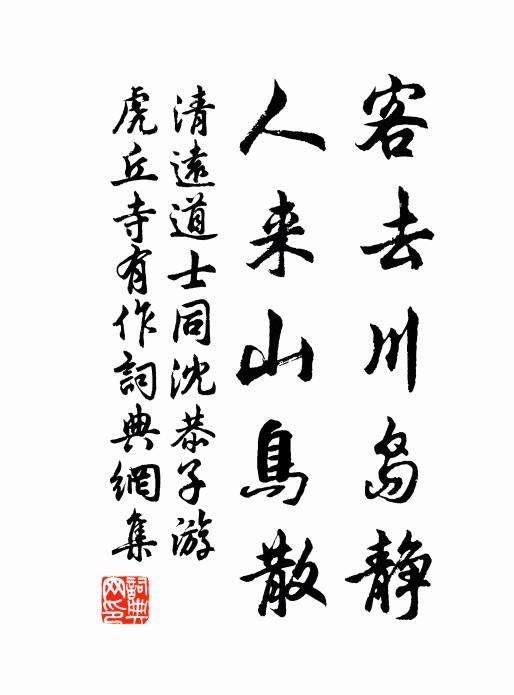 客去川岛静
人来山鳥散
清遠道士同沈恭子游
虎丘寺有作詞典網集
詞典
网印